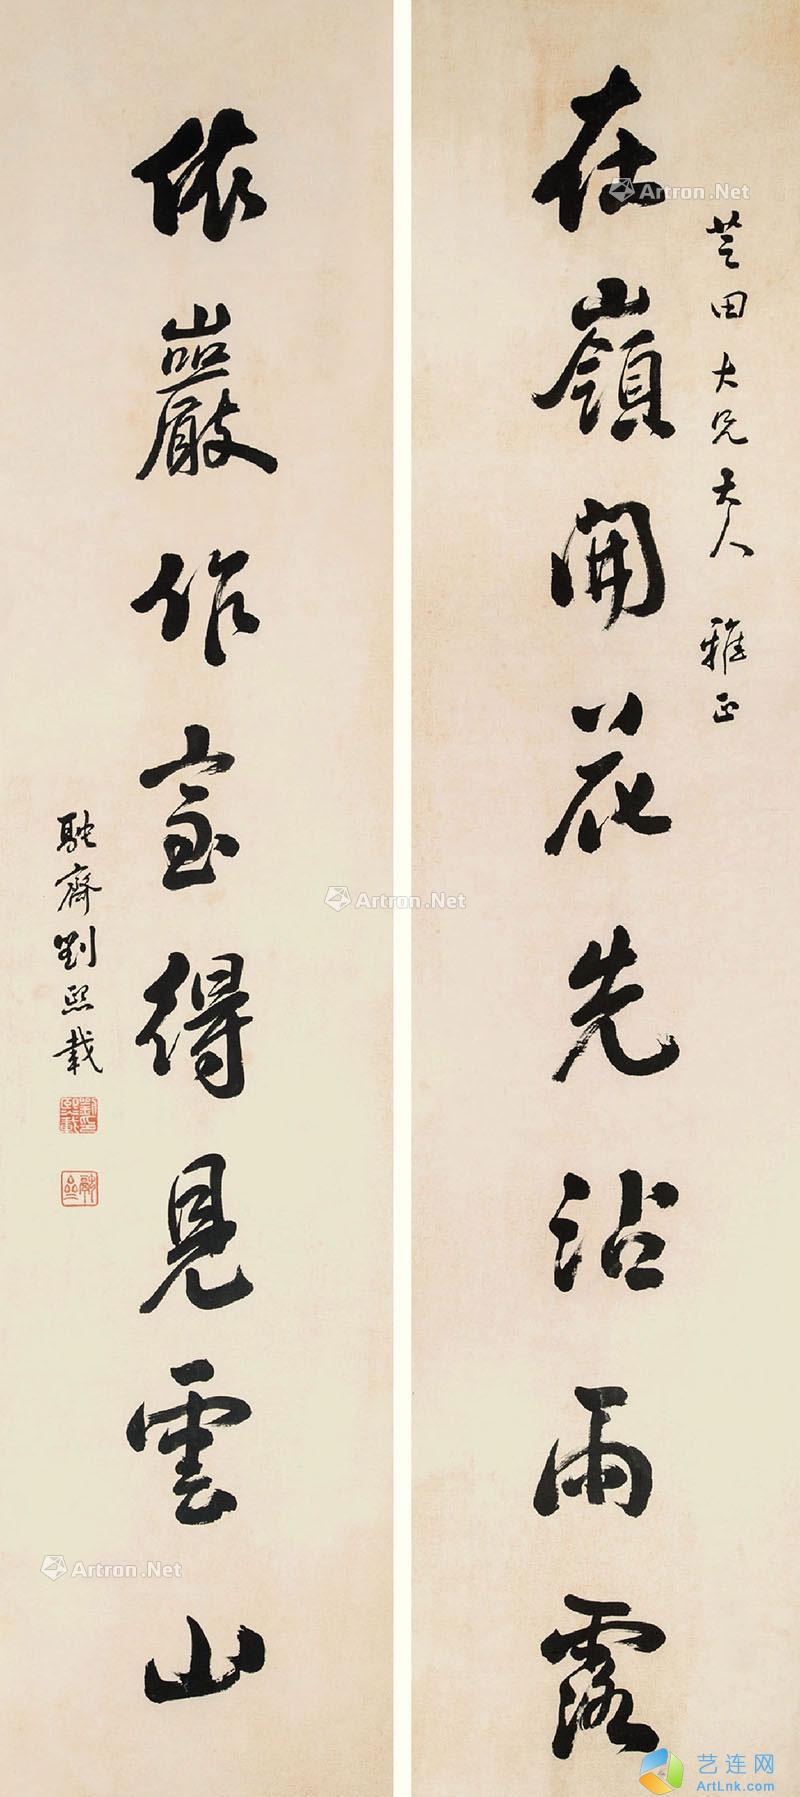 芝田大兄大人 雅正
在嶺開花先沾雨露
依巖作室得見雲山
融齋劉熙載
劉熙載印
融齋
Artron.Net
Artron.Net
Artron.Net
艺连网
ArtLnk.com